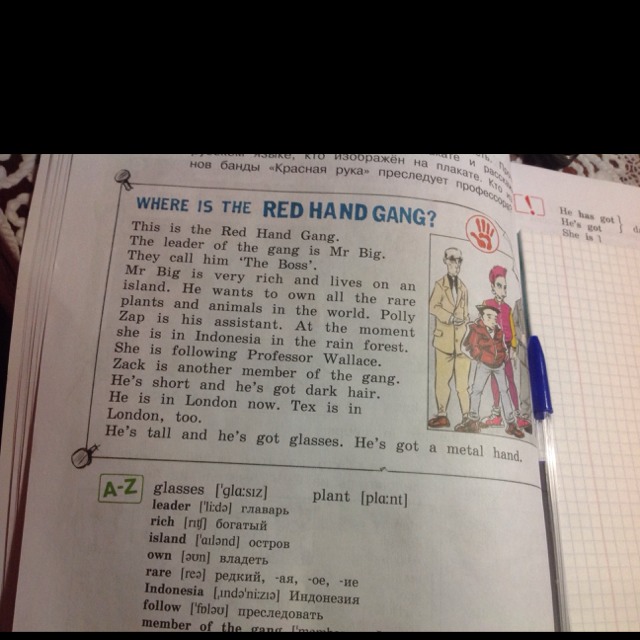 русском языке, кто изображён на плакате и
нов банды «Красная рука» преследует профессора
WHERE IS THE RED HAND GANG?
This is the Red Hand Gang.
The leader of the gang is Mr Big.
They call him 'The Boss'.
Mr Big is very rich and lives on an
island. He wants to own all the rare
plants and animals in the world. Polly
Zap is his assistant. At the moment
she is in Indonesia in the rain forest.
She is following Professor Wallace.
Zack is another member of the gang.
He's short and he's got dark hair.
He is in London now. Tex is in
London, too.
He's tall and he's got glasses. He's got a metal hand.
A-Z
glasses ['glɑ:sɪz] plant [plɑ:nt]
leader ['li:də] главарь
rich [rɪtʃ] богатый
island ['aɪlənd] остров
own [əʊn] владеть
rare [reə] редкий, -ая, -ое, -ие
Indonesia [ˌɪndə'ni:zɪə] Индонезия
follow ['fɒləʊ] преследовать
member of the gang
!
He has got
He's got
She is